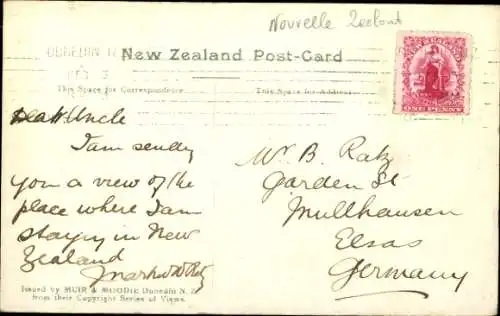 Nouvelle Zeeland
DUNEDIN
New Zealand Post-Card
This Space for Correspondence.
This Space for Address.
ONE PENNY
Dear Uncle
I am sending
you a view of the
place where I am
staying in New
Zealand
Mr B. Ratz
Garden St
Mullhausen
Elsas
Germany
Issued by MUIR & MOODIE Dunedin N.Z.
from their Copyright Series of Views.